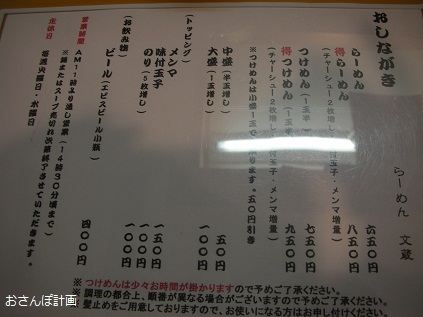 おしながき
らーめん 文蔵
らーめん 六五〇円
得らーめん 八五〇円
(チャーシュー2枚増し・味付玉子・メンマ増量)
つけめん(1玉半) 七五〇円
得つけめん(1玉半) 九五〇円
(チャーシュー2枚増し・味付玉子・メンマ増量)
※つけめんは小盛り1玉で承ります。五〇円引き
中盛(半玉増し) 五〇円
大盛(1玉増し) 一〇〇円
(トッピング)
メンマ 一五〇円
味付玉子 一〇〇円
のり(5枚増し) 一〇〇円
(お飲み物)
ビール(エビスビール小瓶) 四〇〇円
営業時間
AM11時より通し営業(14時30分頃まで)
※麺またはスープ売切れ次第終了させていただきます。
定休日
毎週火曜日・水曜日
※つけめんは少々お時間が掛かりますので予めご了承ください。
※調理の都合上、順番が異なる場合がございますので予めご了承ください。
※髪止めをご用意しておりますので、お使いになる方はお申し付けください。
おさんぽ計画